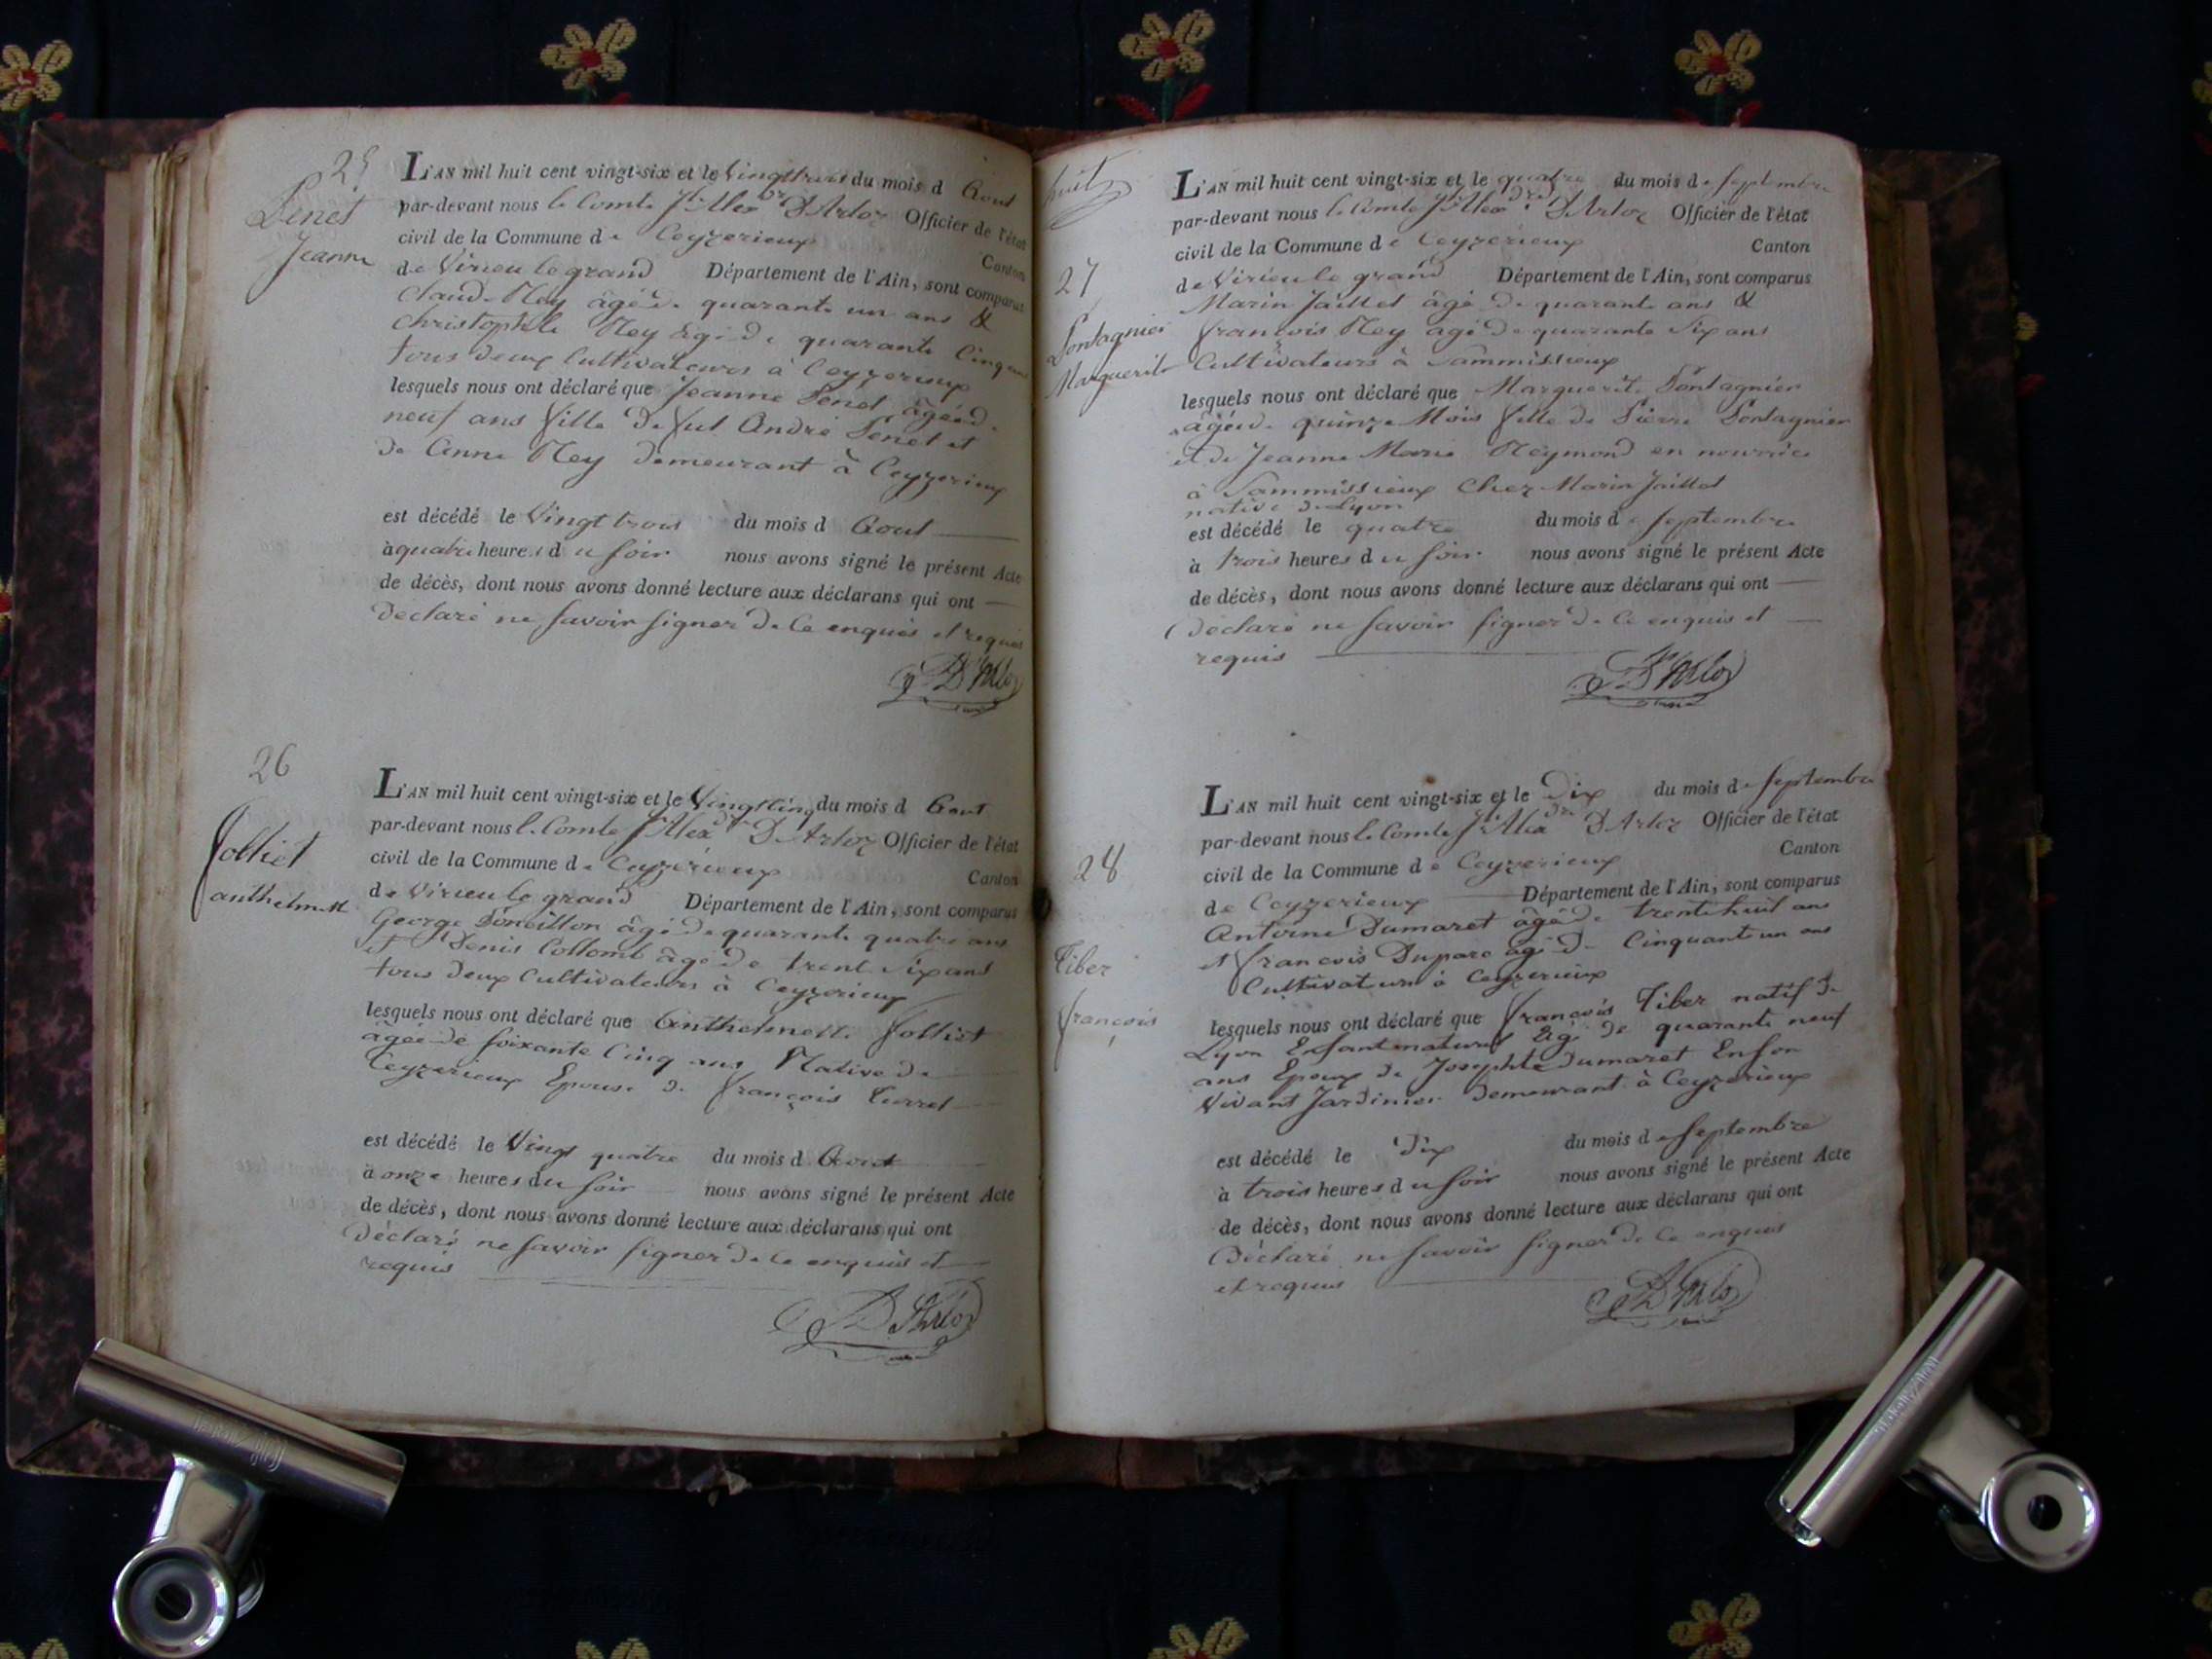 25
Penet
Jeanne
L'AN mil huit cent vingt-six et le Vingt trois du mois d Aout
par-devant nous le Comte Jh Alexdre D'Arloz Officier de l'état
civil de la Commune de Ceyzerieux Canton
de Virieu le grand Département de l'Ain, sont comparus
Claude Rey âgé de quarante un ans &
Christophle Rey âgé de quarante Cinq ans
tous deux Cultivateurs à Ceyzerieux
lesquels nous ont déclaré que Jeanne Penet âgée de
neuf ans fille de fut André Penet et
de Anne Rey demeurant à Ceyzerieux
est décédé le Vingt trois du mois d Aout
à quatre heures du soir nous avons signé le présent Acte
de décès, dont nous avons donné lecture aux déclarans qui ont
Déclaré ne savoir signer de ce enquis et requis
D'Arloz
26
Jolliet
anthelmette
L'AN mil huit cent vingt-six et le Vingt Cinq du mois d Aout
par-devant nous le Comte Jh Alexdre D'Arloz Officier de l'état
civil de la Commune de Ceyzérieux Canton
de Virieu le grand Département de l'Ain, sont comparus
George âgé de quarante quatre ans
et Denis Collomb âgé de trente Six ans
tous deux Cultivateurs à Ceyzerieux
lesquels nous ont déclaré que Anthelmette Jolliet
âgée de soixante Cinq ans Native de
Ceyzerieux Epouse de François
est décédé le Vingt quatre du mois d Aout
à onze heures du soir nous avons signé le présent Acte
de décès, dont nous avons donné lecture aux déclarans qui ont
Déclaré ne savoir signer de ce enquis et
requis
D'Arloz
huit
27
Pontagnier
Marguerite
L'AN mil huit cent vingt-six et le quatre du mois de septembre
par-devant nous le Comte Jh Alexdre D'Arloz Officier de l'état
civil de la Commune de Ceyzerieux Canton
de Virieu le grand Département de l'Ain, sont comparus
Marin Jaillet âgé de quarante ans &
françois Rey agé de quarante Six ans
Cultivateurs à Sammissieux
lesquels nous ont déclaré que Marguerite Pontagnier
agée de quinze Mois fille de Pierre Pontagnier
et de Jeanne Marie Reymond en nourrice
à Sammissieux Chez Marin Jaillet
native de Lyon
est décédé le quatre du mois de septembre
à trois heures du soir nous avons signé le présent Acte
de décès, dont nous avons donné lecture aux déclarans qui ont
Déclaré ne savoir signer de ce enquis et
requis
D'Arloz
28
Tiber
françois
L'AN mil huit cent vingt-six et le Dix du mois de septembre
par-devant nous le Comte Jh Alexdre D'Arloz Officier de l'état
civil de la Commune de Ceyzerieux Canton
de Ceyzerieux Département de l'Ain, sont comparus
Antoine Dumaret âgé de trente huit ans
et françois Duparc agé de Cinquante un ans
Cultivateurs à Ceyzerieux
lesquels nous ont déclaré que françois Tiber natif de
Lyon Enfant naturel âgé de quarante neuf
ans Epoux de Josephte Dumaret En son
Vivant Jardinier demeurant à Ceyzerieux
est décédé le Dix du mois de septembre
à trois heures du soir nous avons signé le présent Acte
de décès, dont nous avons donné lecture aux déclarans qui ont
Déclaré ne savoir signer de ce enquis
et requis
D'Arloz